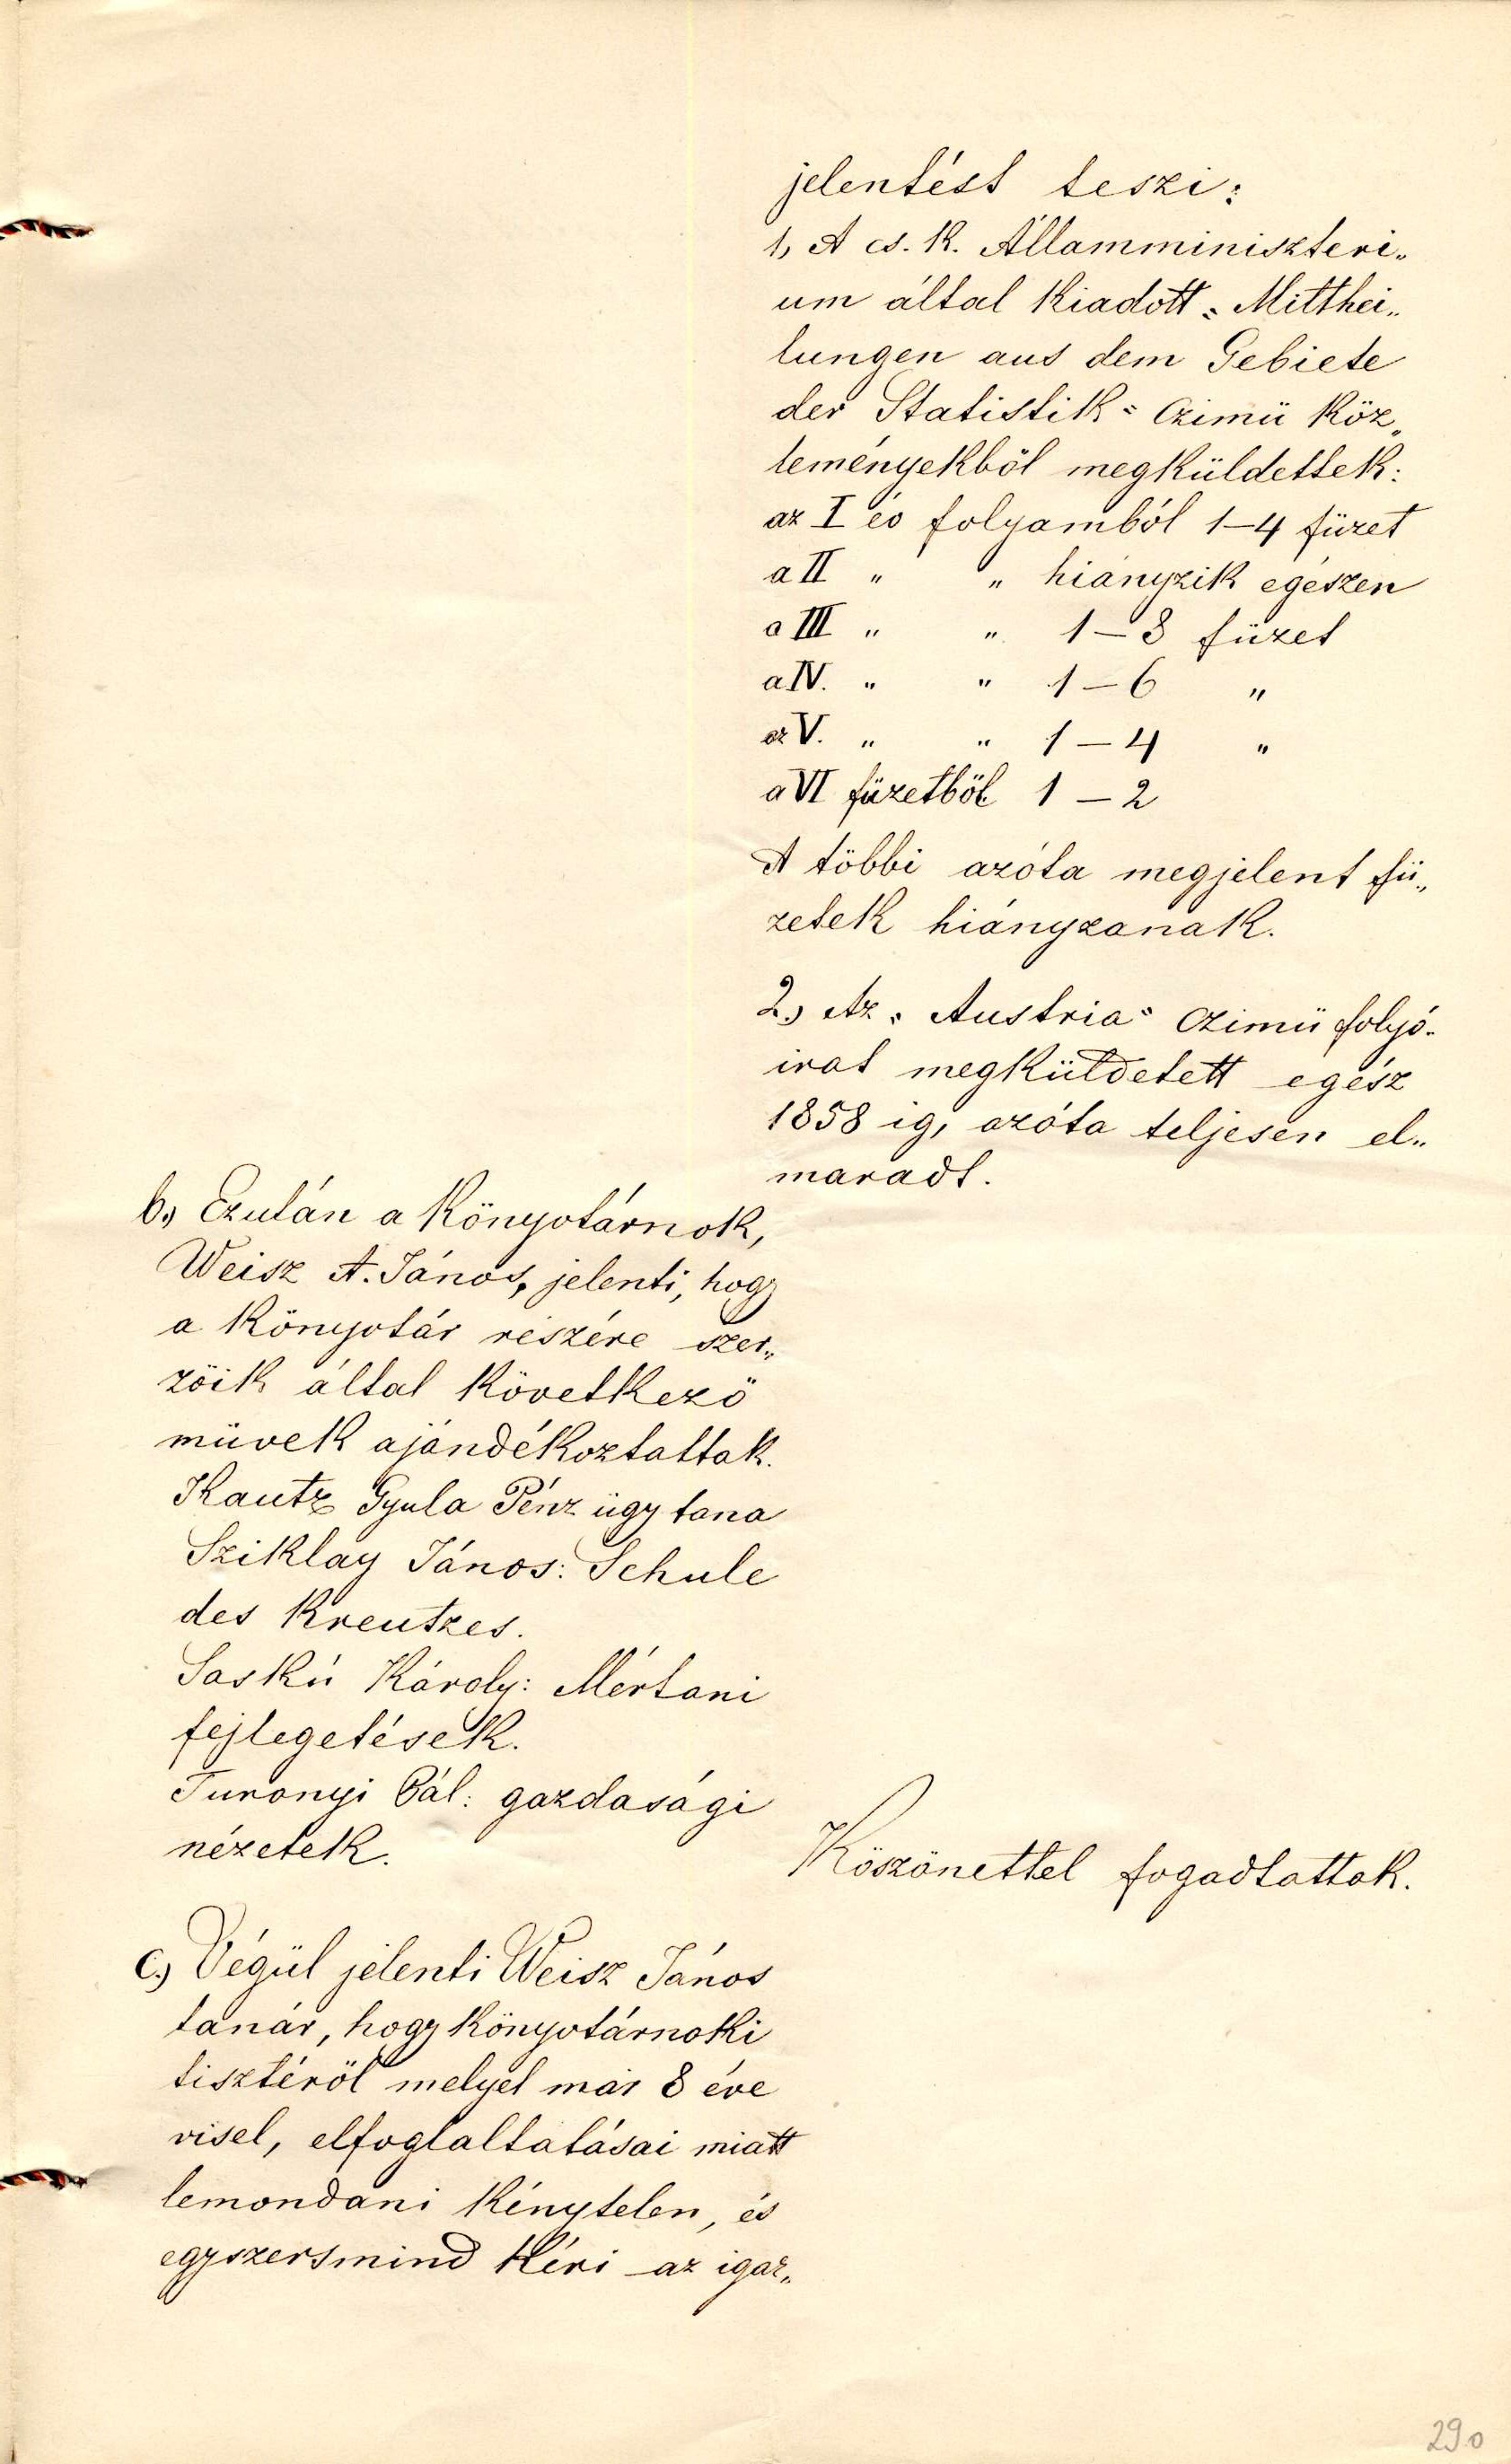 jelentést teszi:
1, A cs. K. Államminiszteri„
um által Kiadott „Mitthei„
lungen aus dem Gebiete
der Statistik" czimü Köz„
leményekböl megküldettek:
az I év folyamból 1–4 füzet
a II " " hiányzik egészen
a III " " 1–3 füzet
a IV. " " 1–6 "
az V. " " 1–4 "
a VI füzetböl 1–2
A többi azóta megjelent fü„
zetek hiányzanak.
2.) Az „Austria" czimü folyó-
irat megküldetett egész
1858 ig, azóta teljesen el„
maradt.
b.) Ezután a Könyvtárnok,
Weisz A. János, jelenti, hogy
a Könyvtár részére szer„
zöik által Következö
müvek ajándékoztattak.
Kautz Gyula Pénz ügy tana
Sziklay János: Schule
des Kreutzes.
Saskú Károly: Mértani
fejlegetések.
Turanyi Pál: gazdasági
nézetek.
Köszönettel fogadtattak.
c.) Végül jelenti Weisz János
tanár, hogy Könyvtárnoki
tisztéröl melyet már 8 éve
visel, elfoglaltatásai miatt
lemondani Kénytelen, és
egyszersmind Kéri az igaz„
290